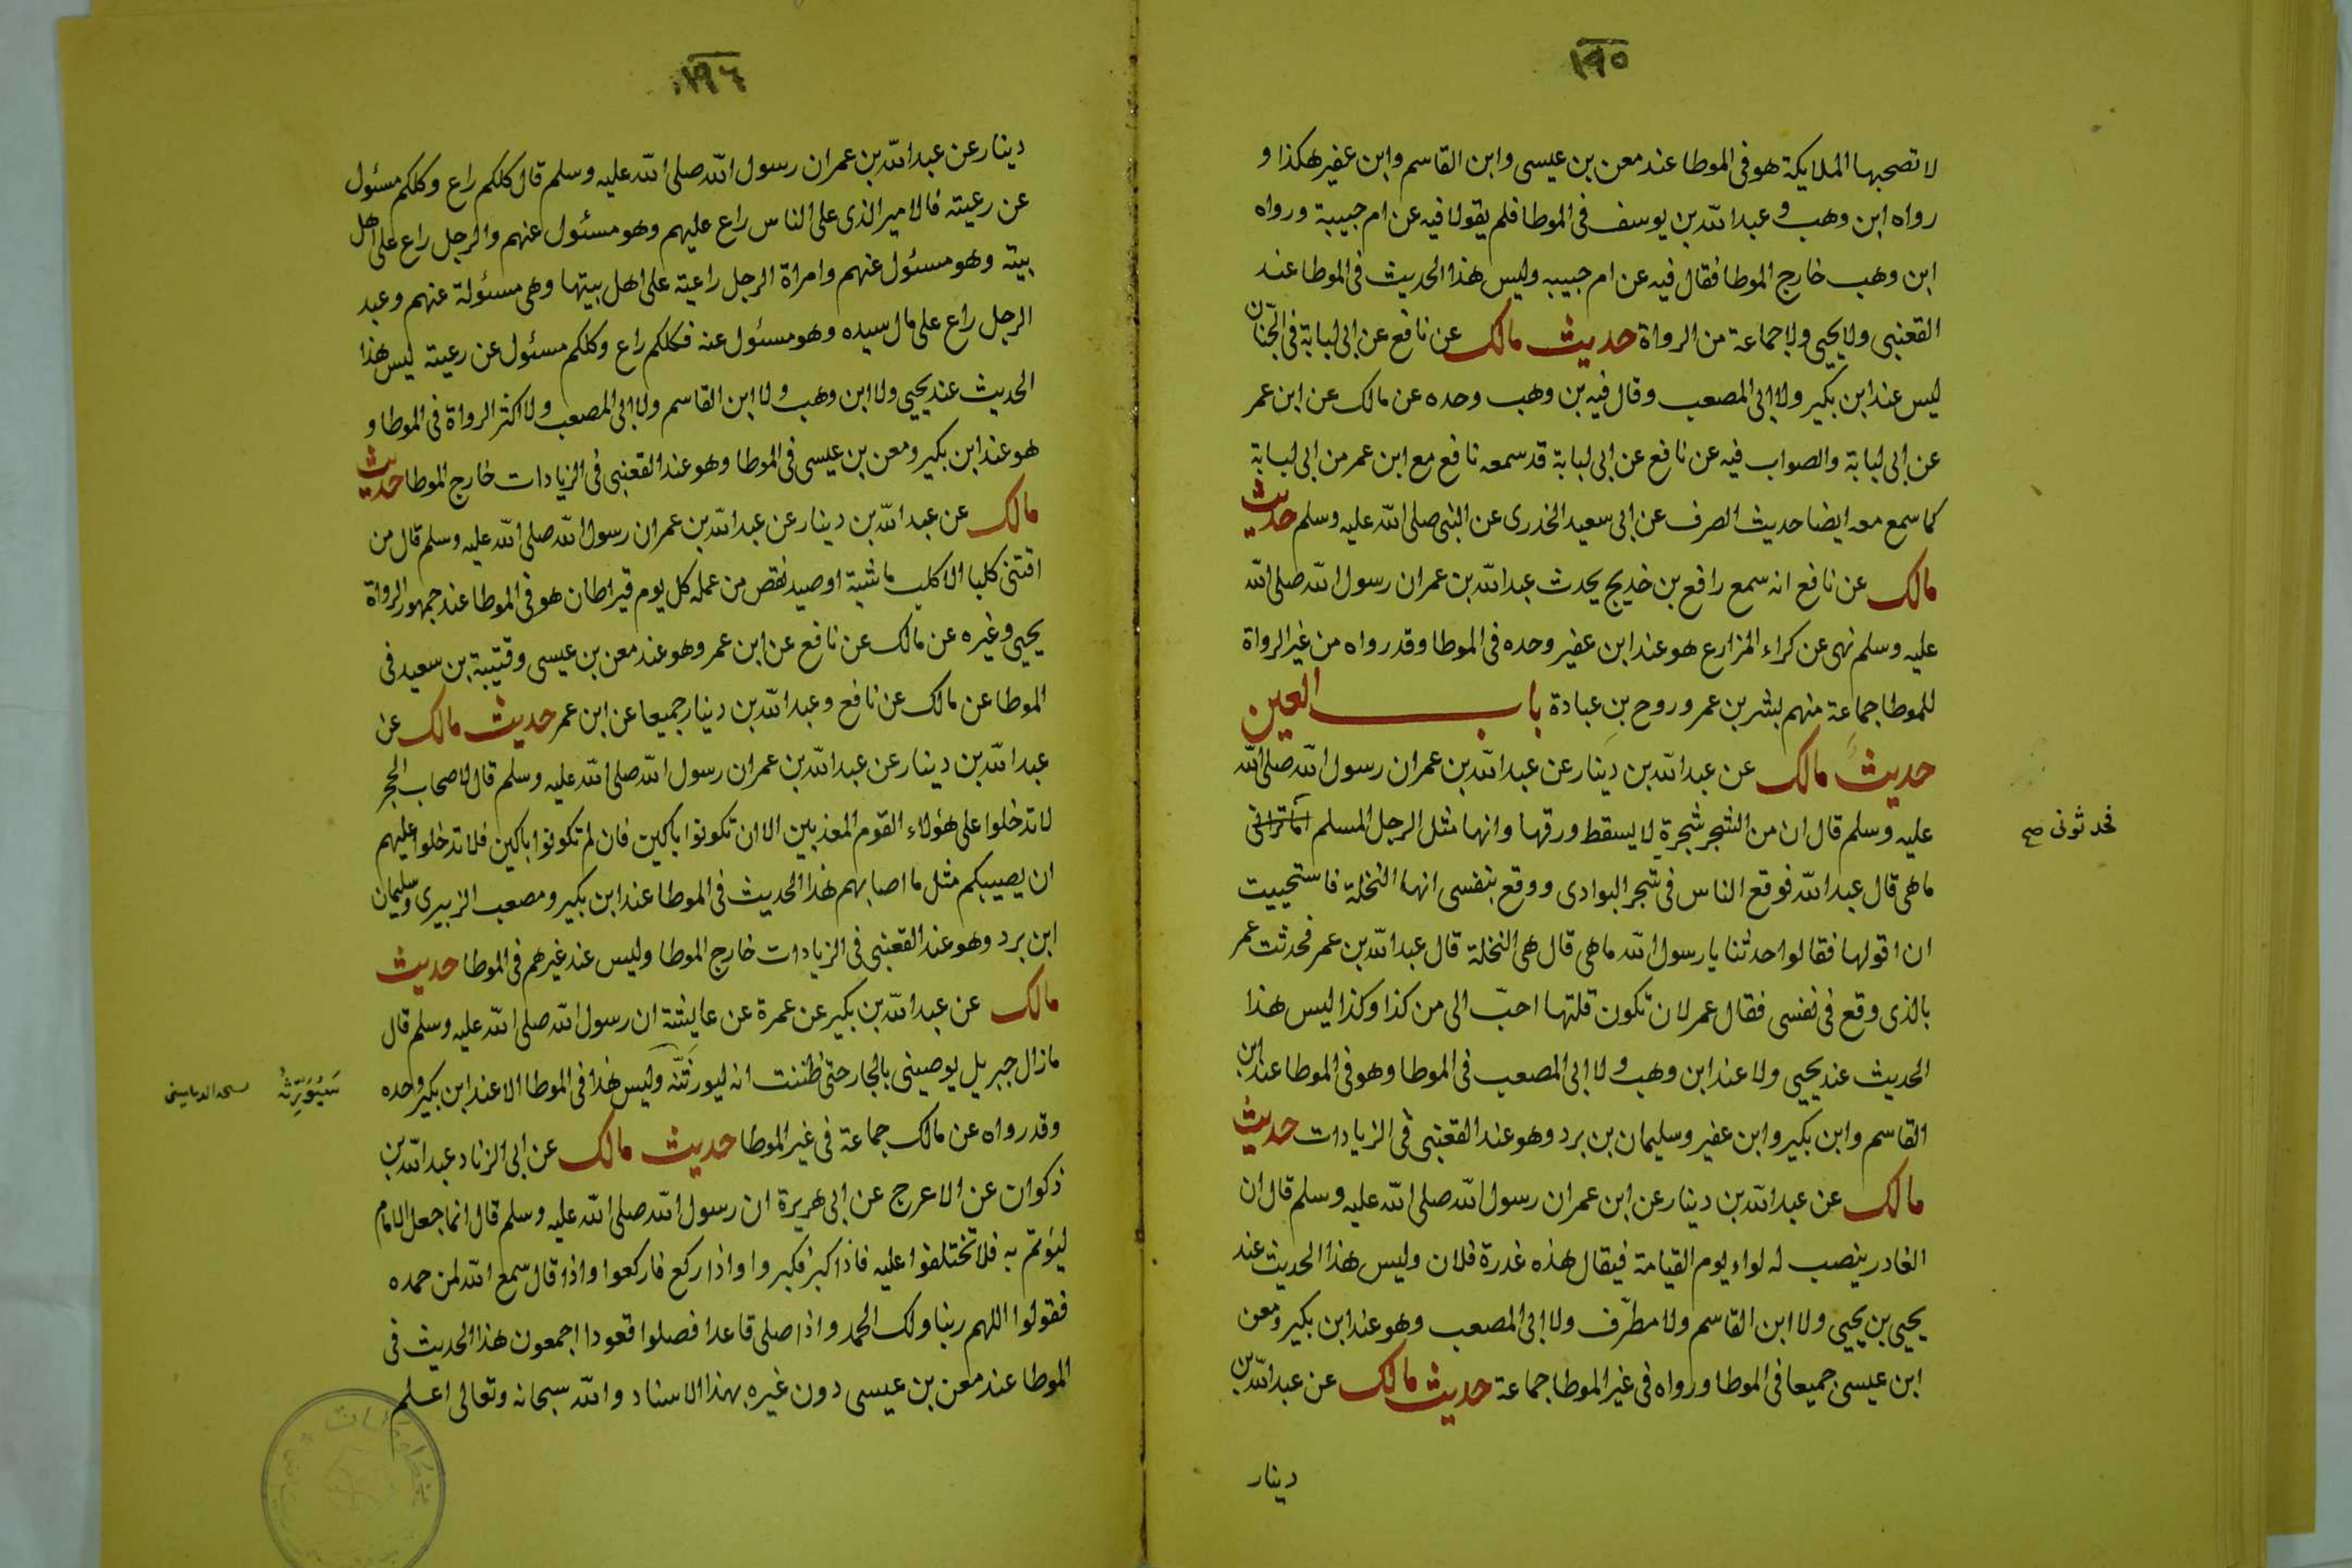 ١٩٥
لا تصحبها الملايكة هو فى الموطا عند معن بن عيسى وابن القاسم وابن عفير هكذا و
رواه ابن وهب و عبد الله بن يوسف فى الموطا فلم يقولا فيه عن ام حبيبة ورواه
ابن وهب خارج الموطا فقال فيه عن ام حبيبه وليس هذا الحديث فى الموطا عند
القعنبى ولا يحيى ولا جماعة من الرواة حديث مالك عن نافع عن ابى لبابة فى الجنان
ليس عند ابن بكير ولا ابى المصعب وقال فيه بن وهب وحده عن مالك عن ابن عمر
عن ابى لبابة والصواب فيه عن نافع عن ابى لبابة قد سمعه نافع مع ابن عمر من ابى لبابة
كما سمع معه ايضا حديث الصرف عن ابى سعيد الخدرى عن النبى صلى الله عليه وسلم حديث
مالك عن نافع انه سمع رافع بن خديج يحدث عبد الله بن عمر ان رسول الله صلى الله
عليه وسلم نهى عن كراء المزارع هو عند ابن عفير وحده فى الموطا وقد رواه من غير الرواة
للموطا جماعة منهم بشر بن عمر وروح بن عبادة باب العين
حديث مالك عن عبد الله بن دينار عن عبد الله بن عمر ان رسول الله صلى الله
عليه وسلم قال ان من الشجر شجرة لا يسقط ورقها وانها مثل الرجل المسلم
فحدثونى صح
ما هى قال عبد الله فوقع الناس فى شجر البوادى ووقع بنفسى انها النخلة فاستحييت
ان اقولها فقالوا حدثنا يا رسول الله ما هى قال هى النخلة قال عبد الله بن عمر فحدثت عمر
بالذى وقع فى نفسى فقال عمر لان تكون قلتها احبّ الى من كذا وكذا ليس هذا
الحديث عند يحيى ولا عند ابن وهب ولا ابى المصعب فى الموطا وهو فى الموطا عند ابن
القاسم وابن بكير وابن عفير وسليمان بن برد وهو عند القعنبى فى الزيادات حديث
مالك عن عبد الله بن دينار عن ابن عمر ان رسول الله صلى الله عليه وسلم قال ان
الغادر ينصب له لواء يوم القيامة فيقال هذه غدرة فلان وليس هذا الحديث عند
يحيى بن يحيى ولا ابن القاسم ولا مطرّف ولا ابى المصعب وهو عند ابن بكير ومعن
ابن عيسى جميعا فى الموطا ورواه فى غير الموطا جماعة حديث مالك عن عبد الله بن
دينار
١٩٦
دينار عن عبد الله بن عمر ان رسول الله صلى الله عليه وسلم قال كلكم راع وكلكم مسئول
عن رعيته فالامير الذى على الناس راع عليهم وهو مسئول عنهم والرجل راع على اهل
بيته وهو مسئول عنهم وامراة الرجل راعية على اهل بيتها وهى مسئولة عنهم وعبد
الرجل راع على مال سيده وهو مسئول عنه فكلكم راع وكلكم مسئول عن رعيته ليس هذا
الحديث عند يحيى ولا ابن وهب ولا ابن القاسم ولا ابى المصعب ولا اكثر الرواة فى الموطا و
هو عند ابن بكير ومعن بن عيسى فى الموطا وهو عند القعنبى فى الزيادات خارج الموطا حديث
مالك عن عبد الله بن دينار عن عبد الله بن عمر ان رسول الله صلى الله عليه وسلم قال من
اقتنى كلبا الا كلب ماشية او صيد نقص من عمله كل يوم قيراطان هو فى الموطا عند جمهور الرواة
يحيى وغيره عن مالك عن نافع عن ابن عمر وهو عند معن بن عيسى وقتيبة بن سعيد فى
الموطا عن مالك عن نافع وعبد الله بن دينار جميعا عن ابن عمر حديث مالك عن
عبد الله بن دينار عن عبد الله بن عمر ان رسول الله صلى الله عليه وسلم قال لاصحاب الحجر
لا تدخلوا على هؤلاء القوم المعذبين الا ان تكونوا باكين فان لم تكونوا باكين فلا تدخلوا عليهم
ان يصيبكم مثل ما اصابهم هذا الحديث فى الموطا عند ابن بكير ومصعب الزبيرى وسليمان
ابن برد وهو عند القعنبى فى الزيادات خارج الموطا وليس عند غيرهم فى الموطا حديث
مالك عن عبد الله بن بكير عن عمرة عن عايشة ان رسول الله صلى الله عليه وسلم قال
مازال جبريل يوصينى بالجار حتى ظننت انه ليورثنّه وليس هذا فى الموطا الا عند ابن بكير وحده
سَيُوَرِّثُهُ
وقد رواه عن مالك جماعة فى غير الموطا حديث مالك عن ابى الزناد عبد الله بن
ذكوان عن الاعرج عن ابى هريرة ان رسول الله صلى الله عليه وسلم قال انما جعل الامام
ليؤتم به فلا تختلفوا عليه فاذا كبر فكبروا واذا ركع فاركعوا واذا قال سمع الله لمن حمده
فقولوا اللهم ربنا ولك الحمد واذا صلى قاعدا فصلوا قعودا اجمعون هذا الحديث فى
الموطا عند معن بن عيسى دون غيره بهذا الاسناد والله سبحانه وتعالى اعلم